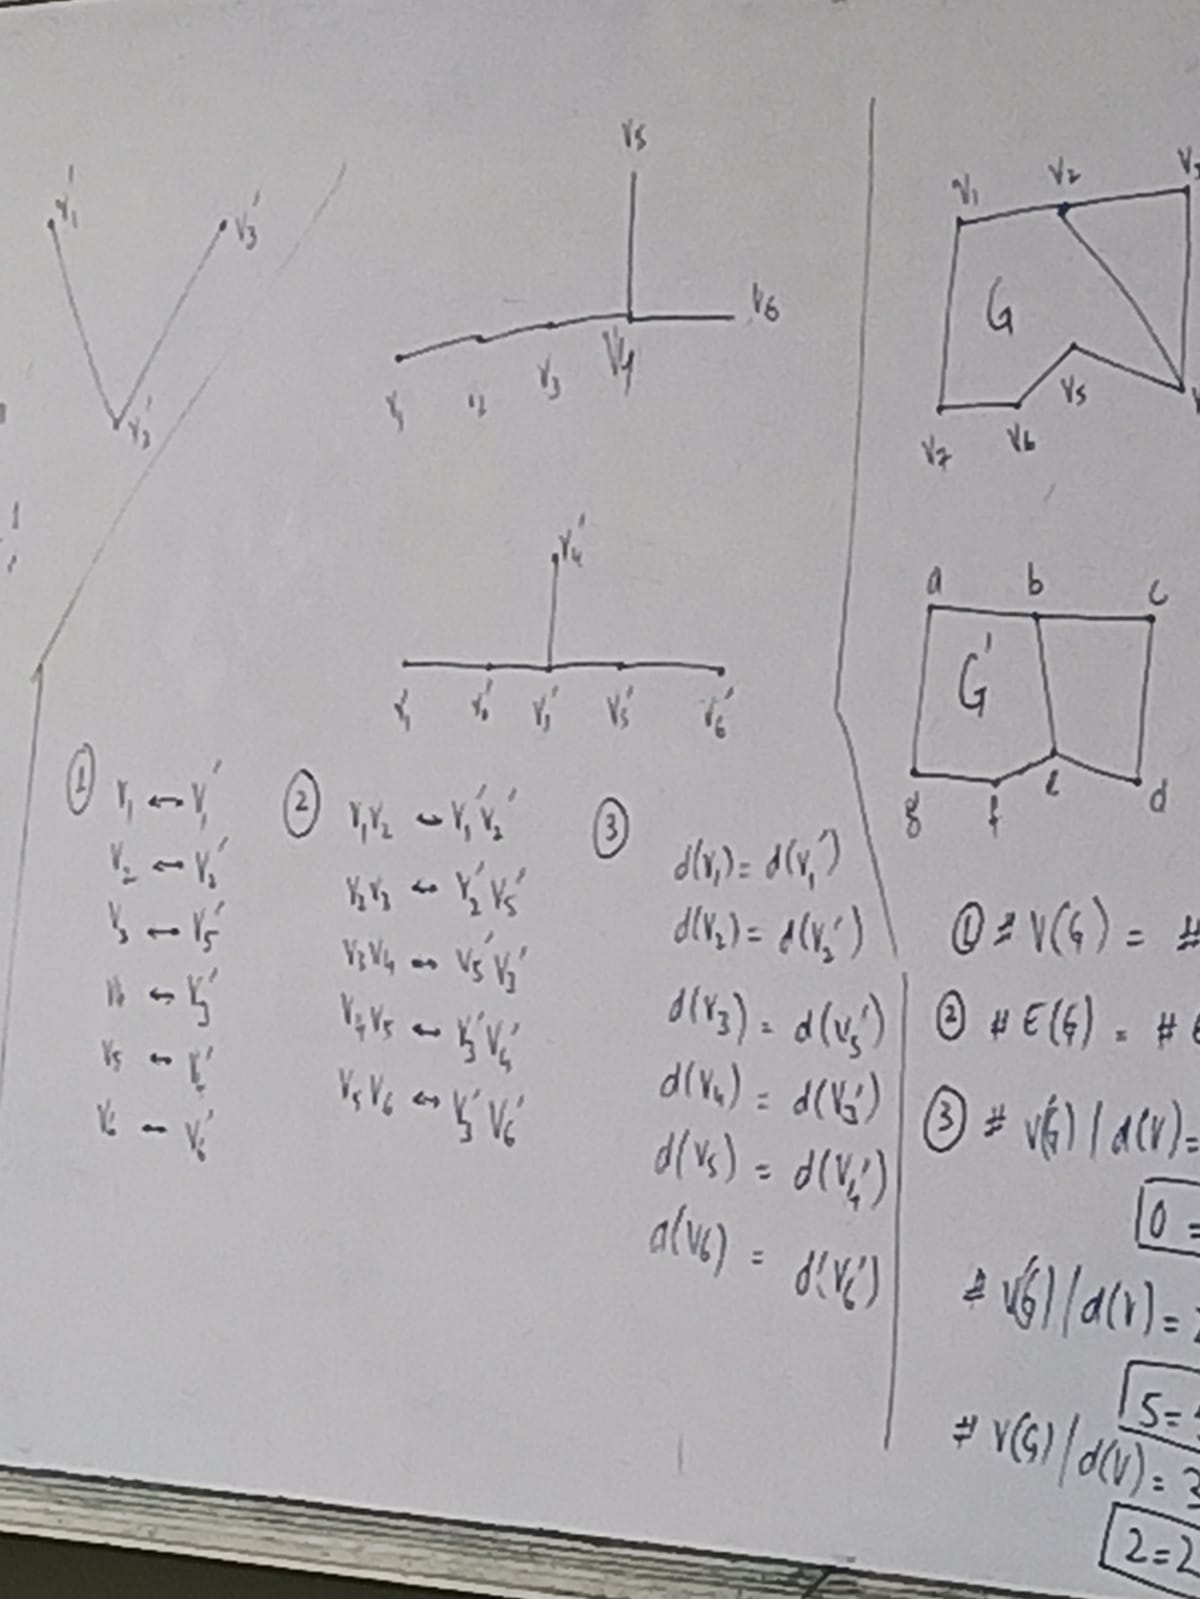 V₁'
V₃'
V₂'
V₅
V₆
V₁
V₃
V₄
V₄'
V₁'
V₂'
V₃'
V₅'
V₆'
①
V₁ ↔ V₁'
V₂ ↔ V₂'
V₃ ↔ V₅'
↔ V₃'
V₅ ↔
V₆ ↔ V₆'
②
V₁V₂ ↔ V₁'V₂'
V₂V₃ ↔ V₂'V₅'
V₃V₄ ↔ V₅'V₃'
V₄V₅ ↔ V₃'V₄'
V₅V₆ ↔ V₃'V₆'
③
d(V₁) = d(V₁')
d(V₂) = d(V₂')
d(V₃) = d(V₅')
d(V₄) = d(V₃')
d(V₅) = d(V₄')
d(V₆) = d(V₆')
V₁
V₂
G
V₅
V₇
V₆
a
b
c
G'
g
f
e
d
① # V(G) = #
② # E(G) = #
③ # V(G) / d(V) =
0 =
# V(G) / d(V) =
5 =
# V(G) / d(V) = 3
2 = 2